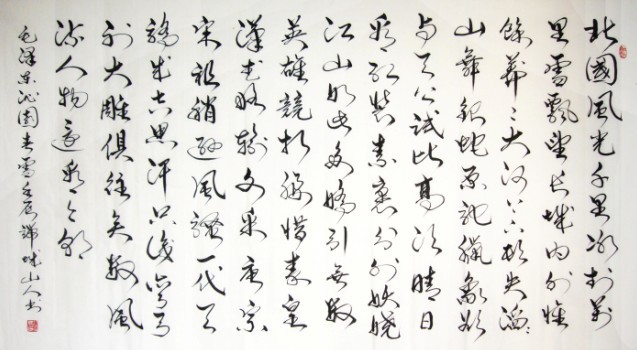 北國風光千里冰封萬
里雪飄望長城內外惟
餘莽々大河上下頓失滔々
山舞銀蛇原馳臘象欲
與天公試比高須晴日
看紅裝素裹分外妖嬈
江山如此多嬌引無數
英雄競折腰惜秦皇
漢武略輸文采唐宗
宋祖稍遜風騷一代天
驕成吉思汗只識彎弓
射大雕俱往矣數風
流人物還看今朝
毛澤東沁園春雪壬辰山人書